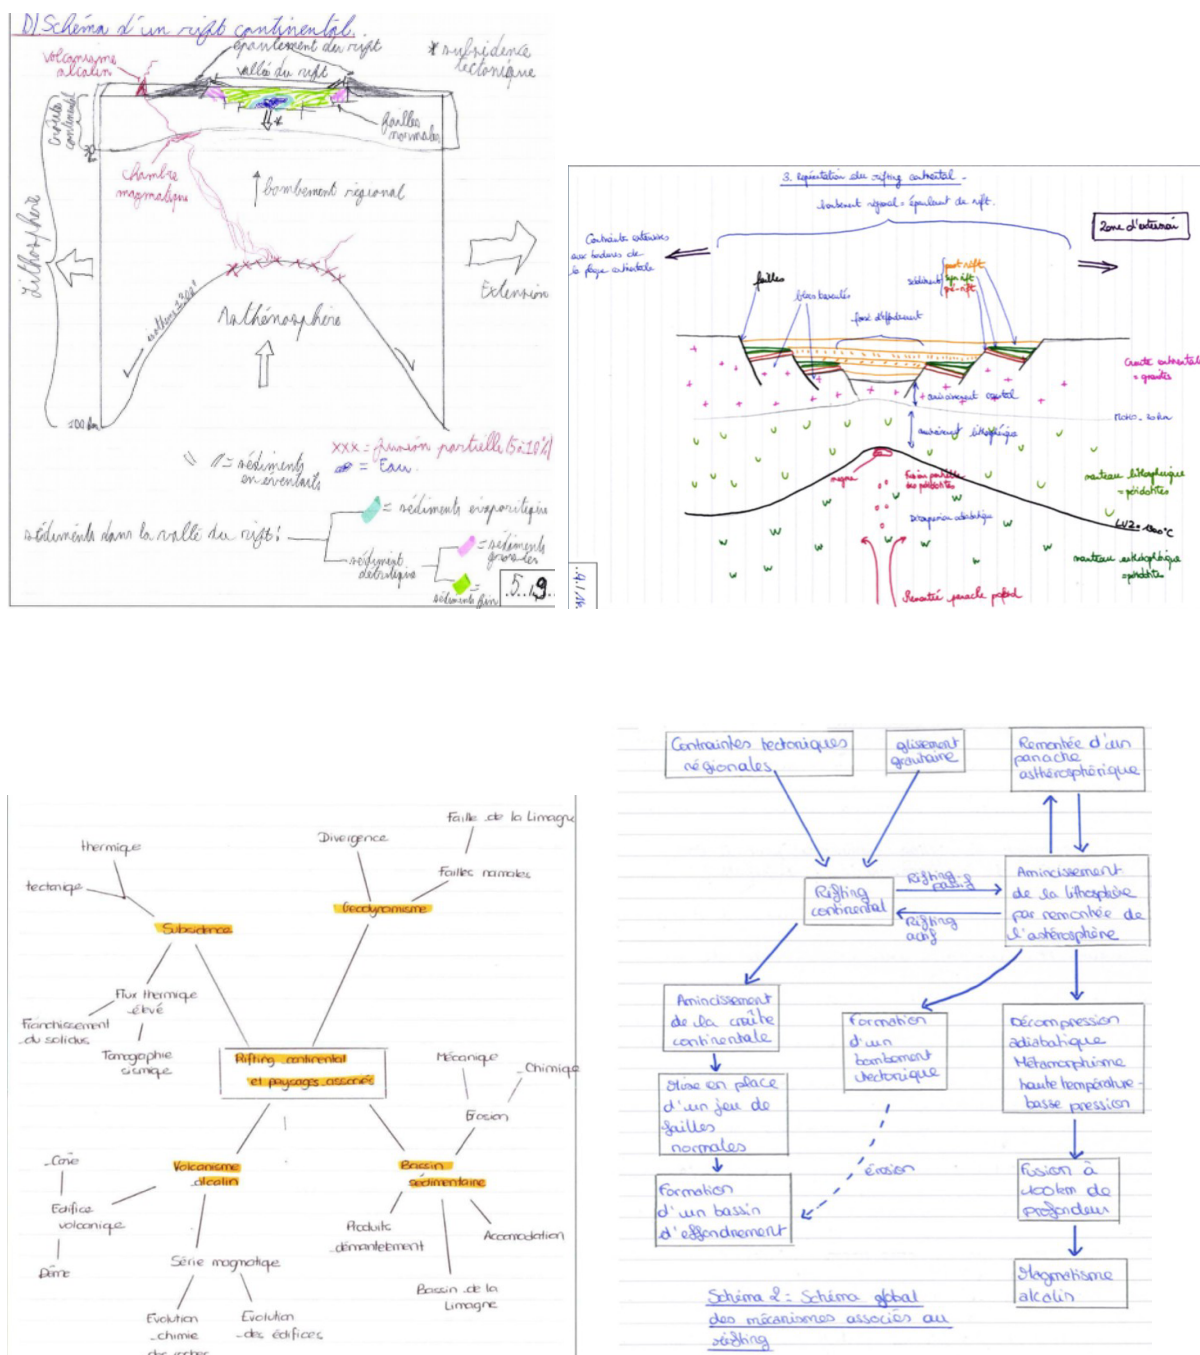 D) Schéma d'un rift continental.
volcanisme
alcalin
épaulement du rift
vallée du rift
* subsidence
tectonique
Croûte
continentale
30
failles
normales
*
chambre
magmatique
bombement régional
Lithosphère
Extension
isotherme 1300°
Asthénosphère
100 km
= sédiments
en éventails
xxx = fusion partielle (5 à 10%)
= Eau.
sédiments dans la vallée du rift:
= sédiments évaporitiques
sédiment
détritique
= sédiments
grossiers
sédiments fin
.5../9..
3. Représentation du rifting continental.
bombement régional = épaulement de rift.
Contraintes extensives
aux bordures de
la plaque continentale
Zone d'extension
failles
blocs basculés
fossé d'effondrement
sédiments
post-rift
syn rift
pré-rift
Croûte continentale
= granites
amincissement crustal
MOHO - 30 km
amincissement lithosphérique
magma
Fusion partielle
des péridotites
manteau lithosphérique
= péridotites
Décompression adiabatique
LVZ = 1300°C
manteau asthénosphérique
= péridotites
Remontée panache profond
thermique
tectonique
Subsidence
Flux thermique
élevé
Franchissement
du solidus
Tomographie
sismique
Divergence
Faille de la Limagne
Failles normales
Geodynamisme
Rifting continental
et paysages associés
Mécanique
Chimique
Erosion
Volcanisme
alcalin
Cône
Edifice
volcanique
Dôme
Série magmatique
Evolution
chimie
des roches
Evolution
des édifices
Bassin
sédimentaire
Produits
démantelement
Accomodation
Bassin de la
Limagne
Contraintes tectoniques
régionales
glissement
gravitaire
Remontée d'un
panache
asthénosphérique
Rifting
continental
Rifting
passif
Rifting
actif
Amincissement
de la lithosphère
par remontée de
l'astérosphère
Amincissement
de la croûte
continentale
Formation
d'un
bombement
tectonique
Décompression
adiabatique
Métamorphisme
haute température-
basse pression
Mise en place
d'un jeu de
failles
normales
érosion
Fusion à
100km de
profondeur
Formation
d'un bassin
d'effondrement
Magmatisme
alcalin
Schéma 2 = Schéma global
des mécanismes associés au
rifting